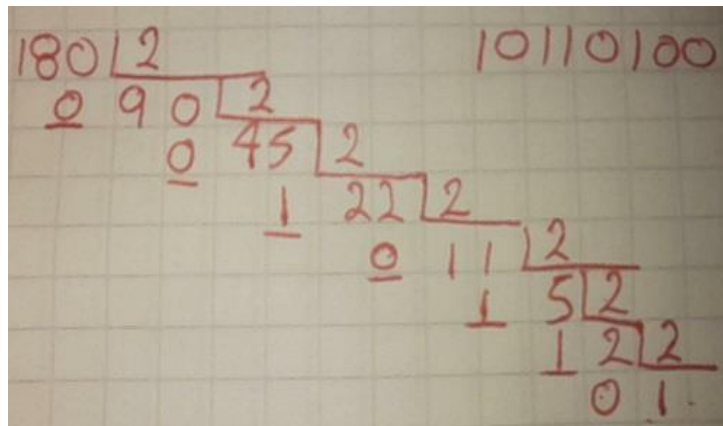 180 2 10110100
0 90 2
0 45 2
1 22 2
0 11 2
1 5 2
1 2 2
0 1